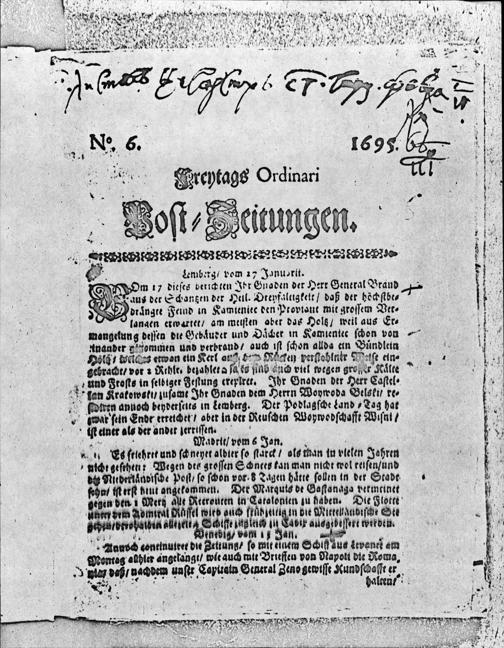 No. 6.
1695.
Freytags Ordinari
Post-Zeitungen.
Lemberg/ vom 27 Januarii.
Vom 17 dieses berichten Ihr Gnaden der Herr General Brand
aus der Schantzen der Heil. Dreyfaltigkeit/ daß der höchstbe-
drängte Feind in Kamieniec den Proviant mit grossem Ver-
langen erwartet/ am meisten aber das Holtz/ weil aus Er-
mangelung dessen die Gebäuder und Dächer in Kamieniec schon von
einander genommen und verbrand/ auch ist schon allda ein Bündlein
Holtz/ welches etwan ein Kerl auf dem Rücken verstohlner Weise ein-
gebracht/ vor 2 Rthlr. bezahlet/ so sind auch viel wegen grosser Kälte
und Frosts in selbiger Festung crepiret. Ihr Gnaden der Herr Castel-
lan Krakowski/ zusamt Ihr Gnaden dem Herrn Woywoda Belski/ re-
sidiren annoch beyderseits in Lemberg. Der Podlagsche Land-Tag hat
zwar sein Ende erreichet/ aber in der Reuschen Woywodschafft Wisni/
ist einer als der ander zerrissen.
Madrit/ vom 6 Jan.
Es frieret und schneyet alhier so starck/ als man in vielen Jahren
nicht gesehen: Wegen des grossen Schnees kan man nicht wol reisen/ und
die Niederländische Post/ so schon vor 8 Tagen hätte sollen in der Stadt
seyn/ ist erst heut angekommen. Der Marquis de Gastanaga vermeinet
gegen den 1 Mertz alle Recreuten in Catalonien zu haben. Die Flotte
unter dem Admiral Russel wird auch frühzeitig in die Mittelländische See
gehen/ derohalben allezeit 4 Schiffe zugleich zu Cadix ausgebessert werden.
Venedig/ vom 15 Jan.
Annoch continuiret die Zeitung/ so mit einem Schiff aus Levante am
Montag alhier angelangt/ wie auch mit Brieffen von Napoli de Roma-
nien daß/ nachdem unser Capitain General Zeno gewisse Kundschafft er-
halten/